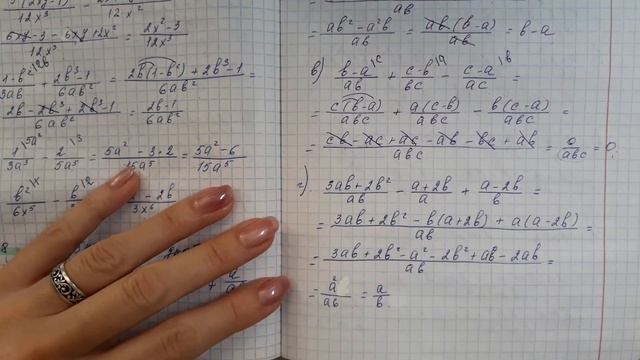 12x³ 12x²
= (6xy - 3 - 6xy + 2x²)/12x³ = (2x² - 3)/12x³
(1-b²)/3ab + (2b³-1)/6ab² = (2b(1-b²) + 2b³-1)/6ab² =
(2b - 2b³ + 2b³ - 1)/6ab² = (2b-1)/6ab²
1/3a³ - 2/5a⁵ = (5a² - 3·2)/15a⁵ = (5a² - 6)/15a⁵
b²/6x⁵ - b/ - 2b/3x⁶
8
+ a/
ab
= (ab² - a²b)/ab = ab(b-a)/ab = b-a
в) (b-a)/ab + (c-b)/bc - (c-a)/ac =
= c(b-a)/abc + a(c-b)/abc - b(c-a)/abc =
= (cb - ac + ac - ab - bc + ab)/abc = 0/abc = 0.
г) (3ab+2b²)/ab - (a+2b)/a + (a-2b)/b =
= (3ab + 2b² - b(a+2b) + a(a-2b))/ab =
= (3ab + 2b² - a² - 2b² + ab - 2ab)/ab =
= a²/ab = a/b